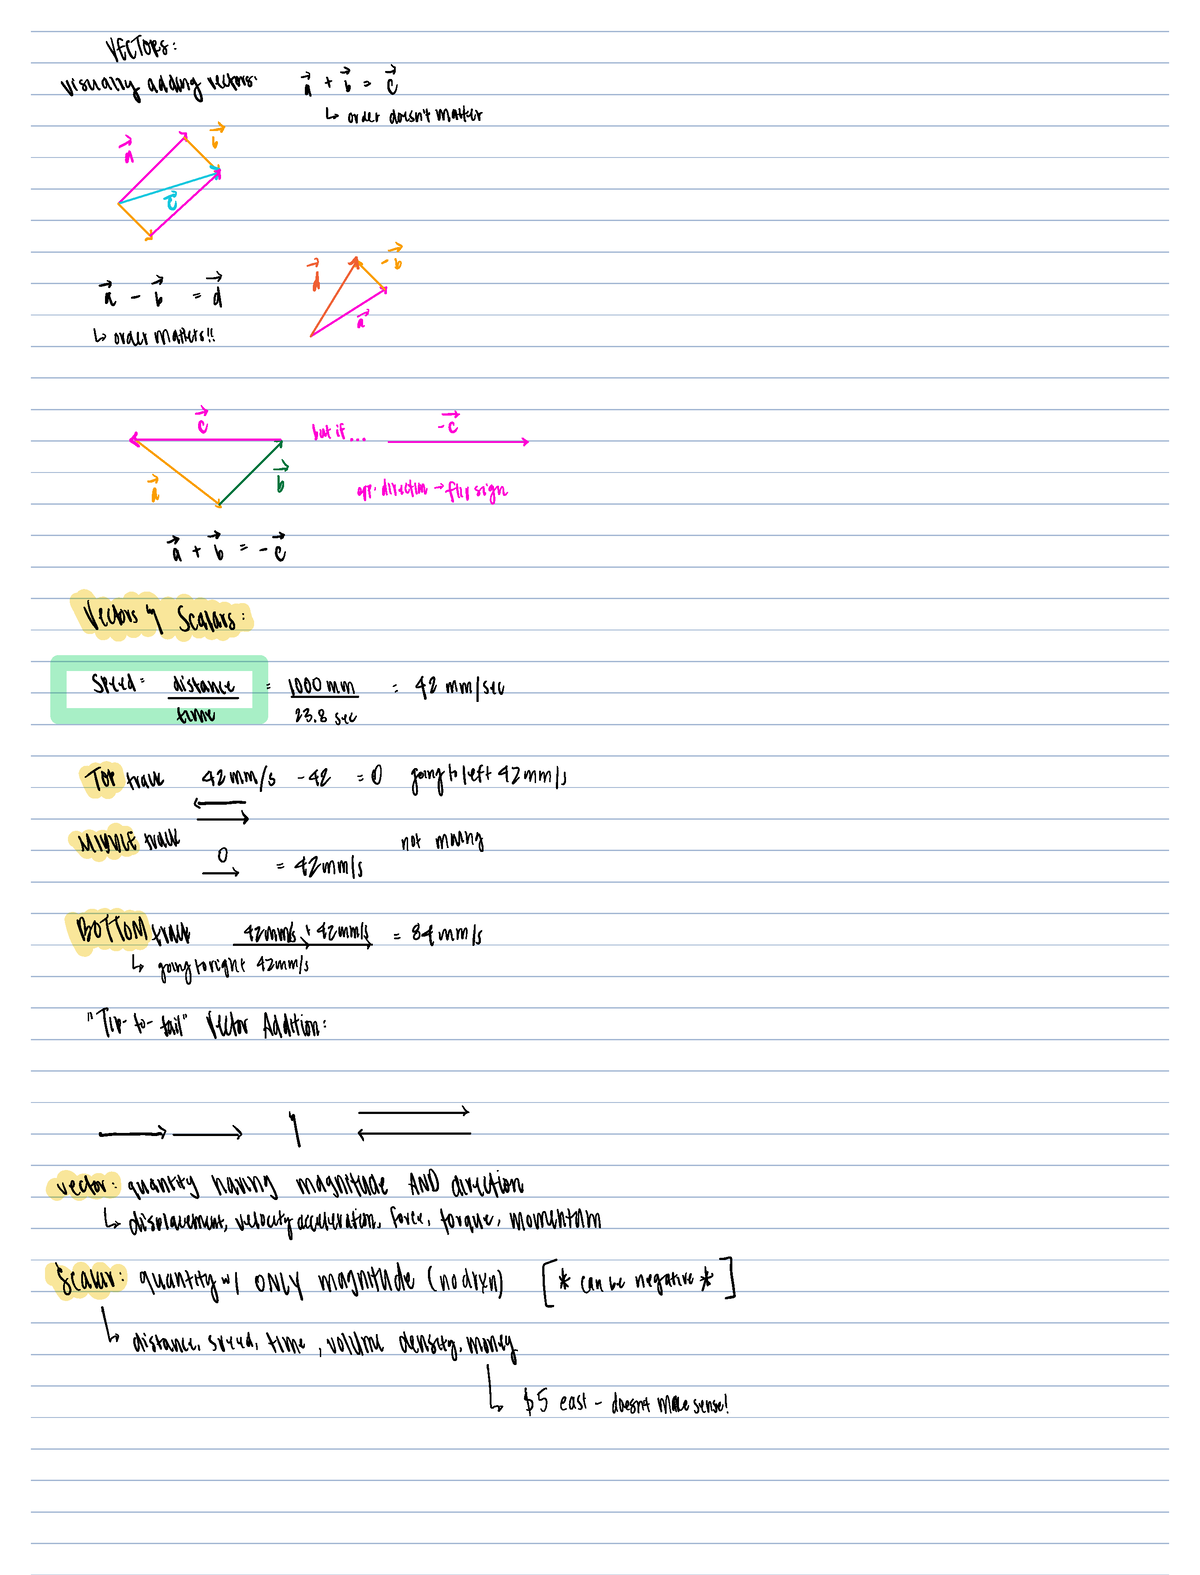 VECTORS:
visually adding vectors: a⃗ + b⃗ = c⃗
↳ order doesn't matter
a⃗ b⃗
c⃗
a⃗ - b⃗ = d⃗
↳ order matters!!
d⃗ -b⃗
a⃗
c⃗ but if ... -c⃗
a⃗ b⃗
opp. direction → flip sign
a⃗ + b⃗ = -c⃗
Vectors & Scalars:
Speed = distance / time = 1000 mm / 23.8 sec = 42 mm/sec
TOP track 42 mm/s - 42 = 0 going to left 42 mm/s
MIDDLE track not moving
0 = 42 mm/s
BOTTOM track 42mm/s + 42mm/s = 84 mm/s
↳ going to right 42mm/s
"Tip-to-tail" Vector Addition:
vector: quantity having magnitude AND direction
↳ displacement, velocity, acceleration, force, torque, momentum
Scalar: quantity w/ ONLY magnitude (no drxn) [* can be negative *]
↳ distance, speed, time, volume density, money
↳ $5 east - doesnt make sense!